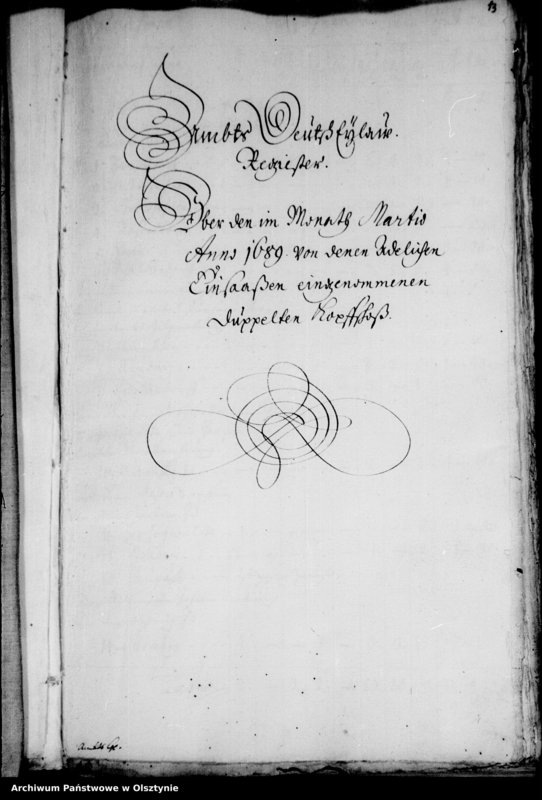 13
Ambts Deütsch Eylaw.
Regiester.
Über den im Monath Martio
Anno 1689. von denen Adelichen
Einsaaßen eingenommenen
düppelten Kopffschoß.
Archiwum Państwowe w Olsztynie